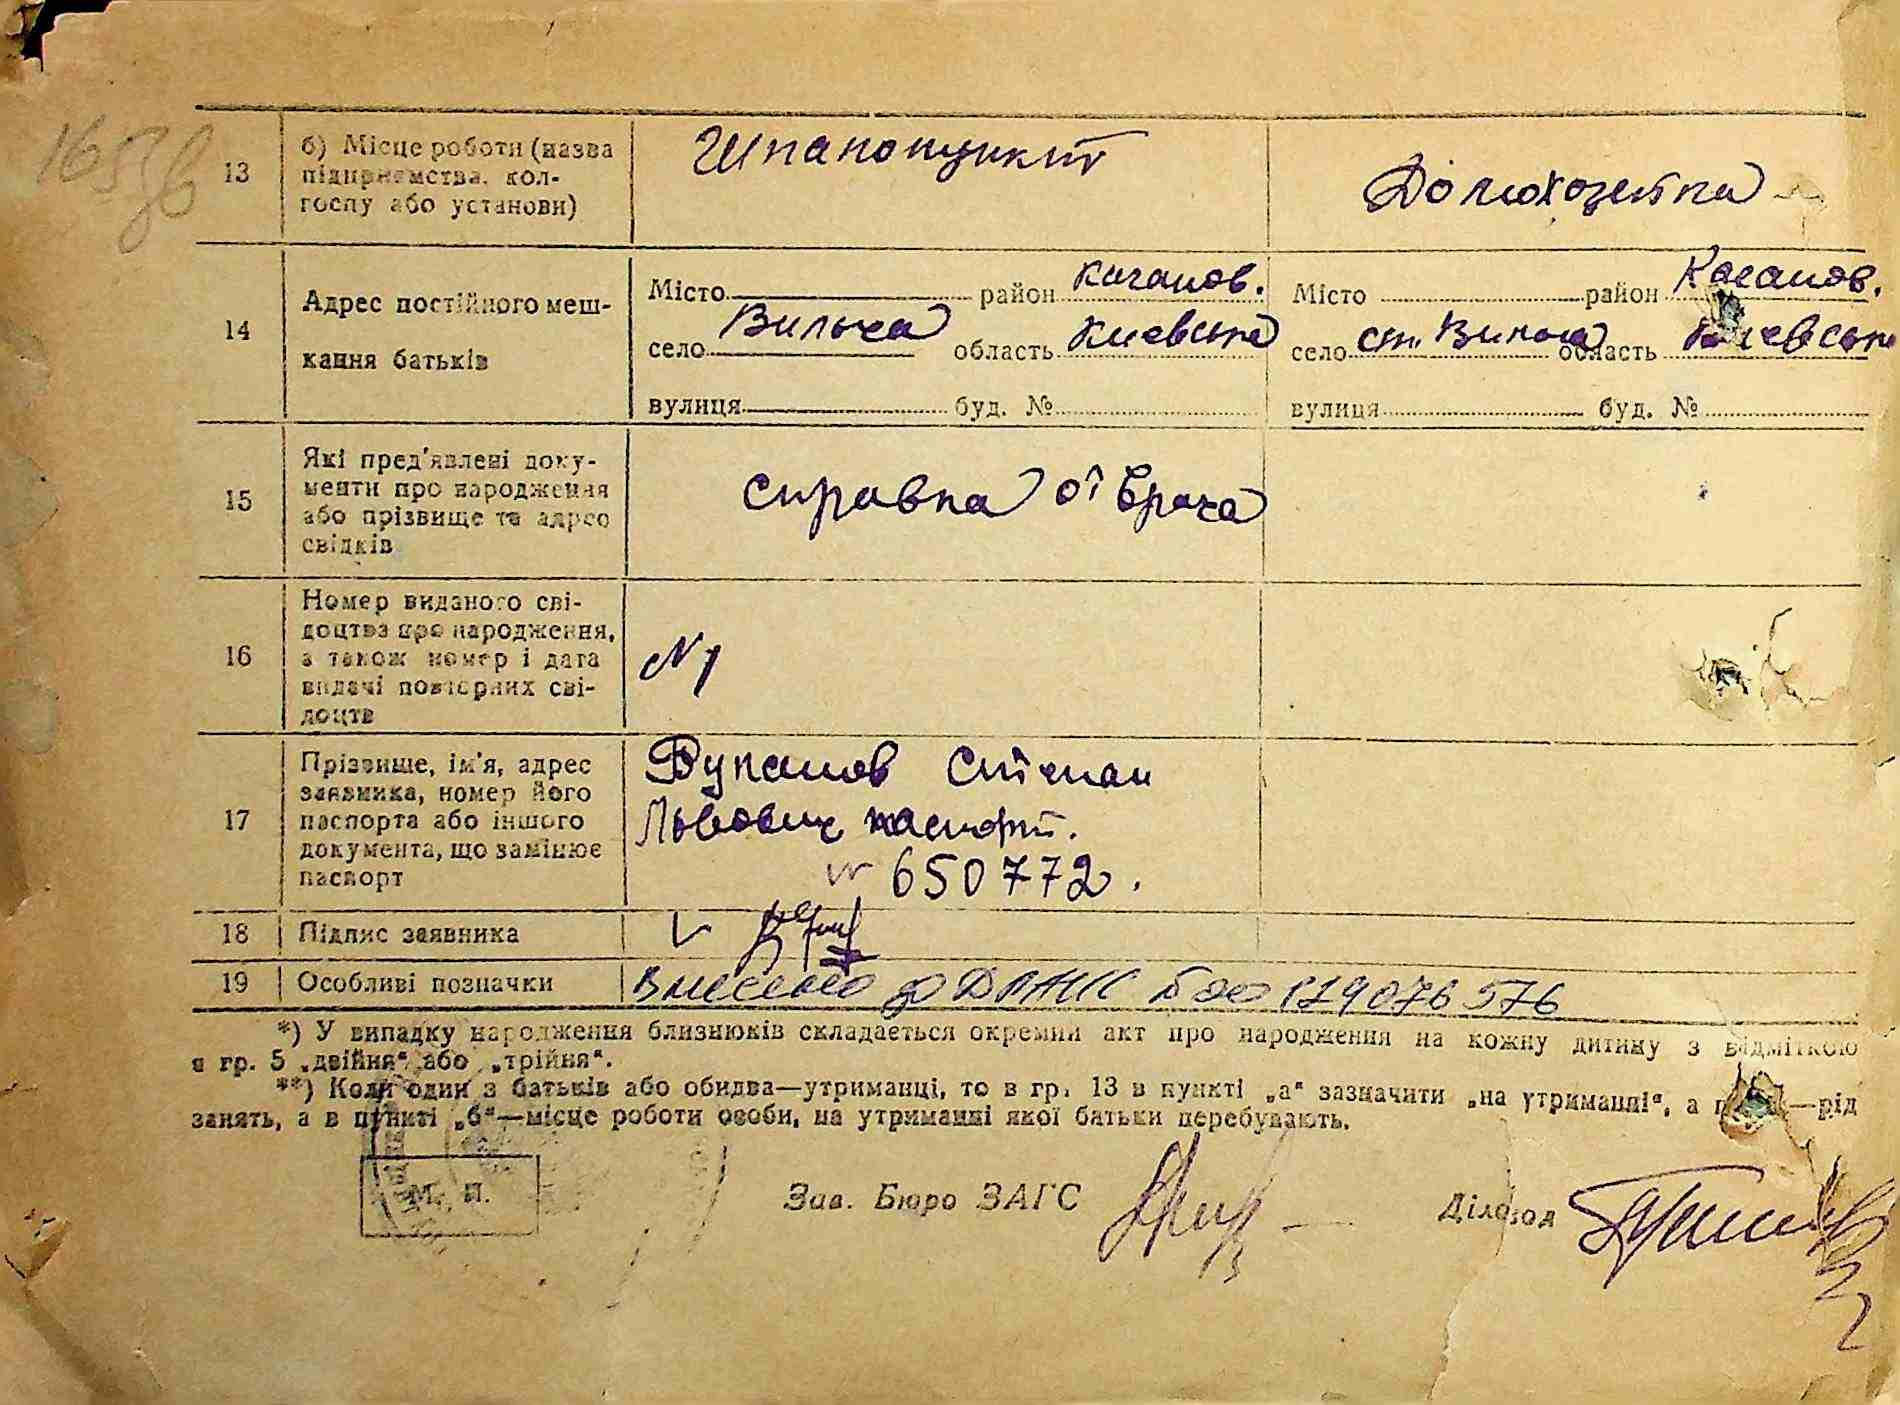 13 б) Місце роботи (назва підприємства, кол-госпу або установи) Шпалопункт Домохозяйка
14 Адрес постійного меш-кання батьків
Місто район Каганов. Місто район Каганов.
село Вильча область Киевська село ст. Вильча область Киевськ
вулиця буд. № вулиця буд. №
15 Які пред'явлені доку-
менти про народження
або прізвище та адрес
свідків
справка от врача
16 Номер виданого сві-
доцтва про народження,
а також номер і дата
видачі повторних сві-
доцтв
N 1
17 Прізвище, ім'я, адрес
заявника, номер його
паспорта або іншого
документа, що замінює
паспорт
Степан
Львович паспорт.
№ 650772.
18 Підпис заявника
19 Особливі позначки Внесено до ДРАЦС 179076576
*) У випадку народження близнюків складається окремий акт про народження на кожну дитину з відміткою
в гр. 5 „двійня" або „трійня".
**) Коли один з батьків або обидва—утриманці, то в гр. 13 в пункті „а" зазначити „на утриманні", а —рід
занять, а в пункті „б"—місце роботи особи, на утриманні якої батьки перебувають.
М. П. Зав. Бюро ЗАГС Діловод